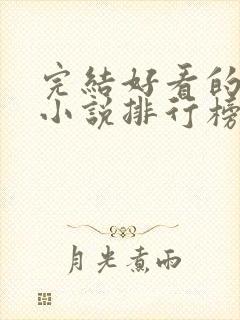 完結好看的
小說排行榜
月光煮雨